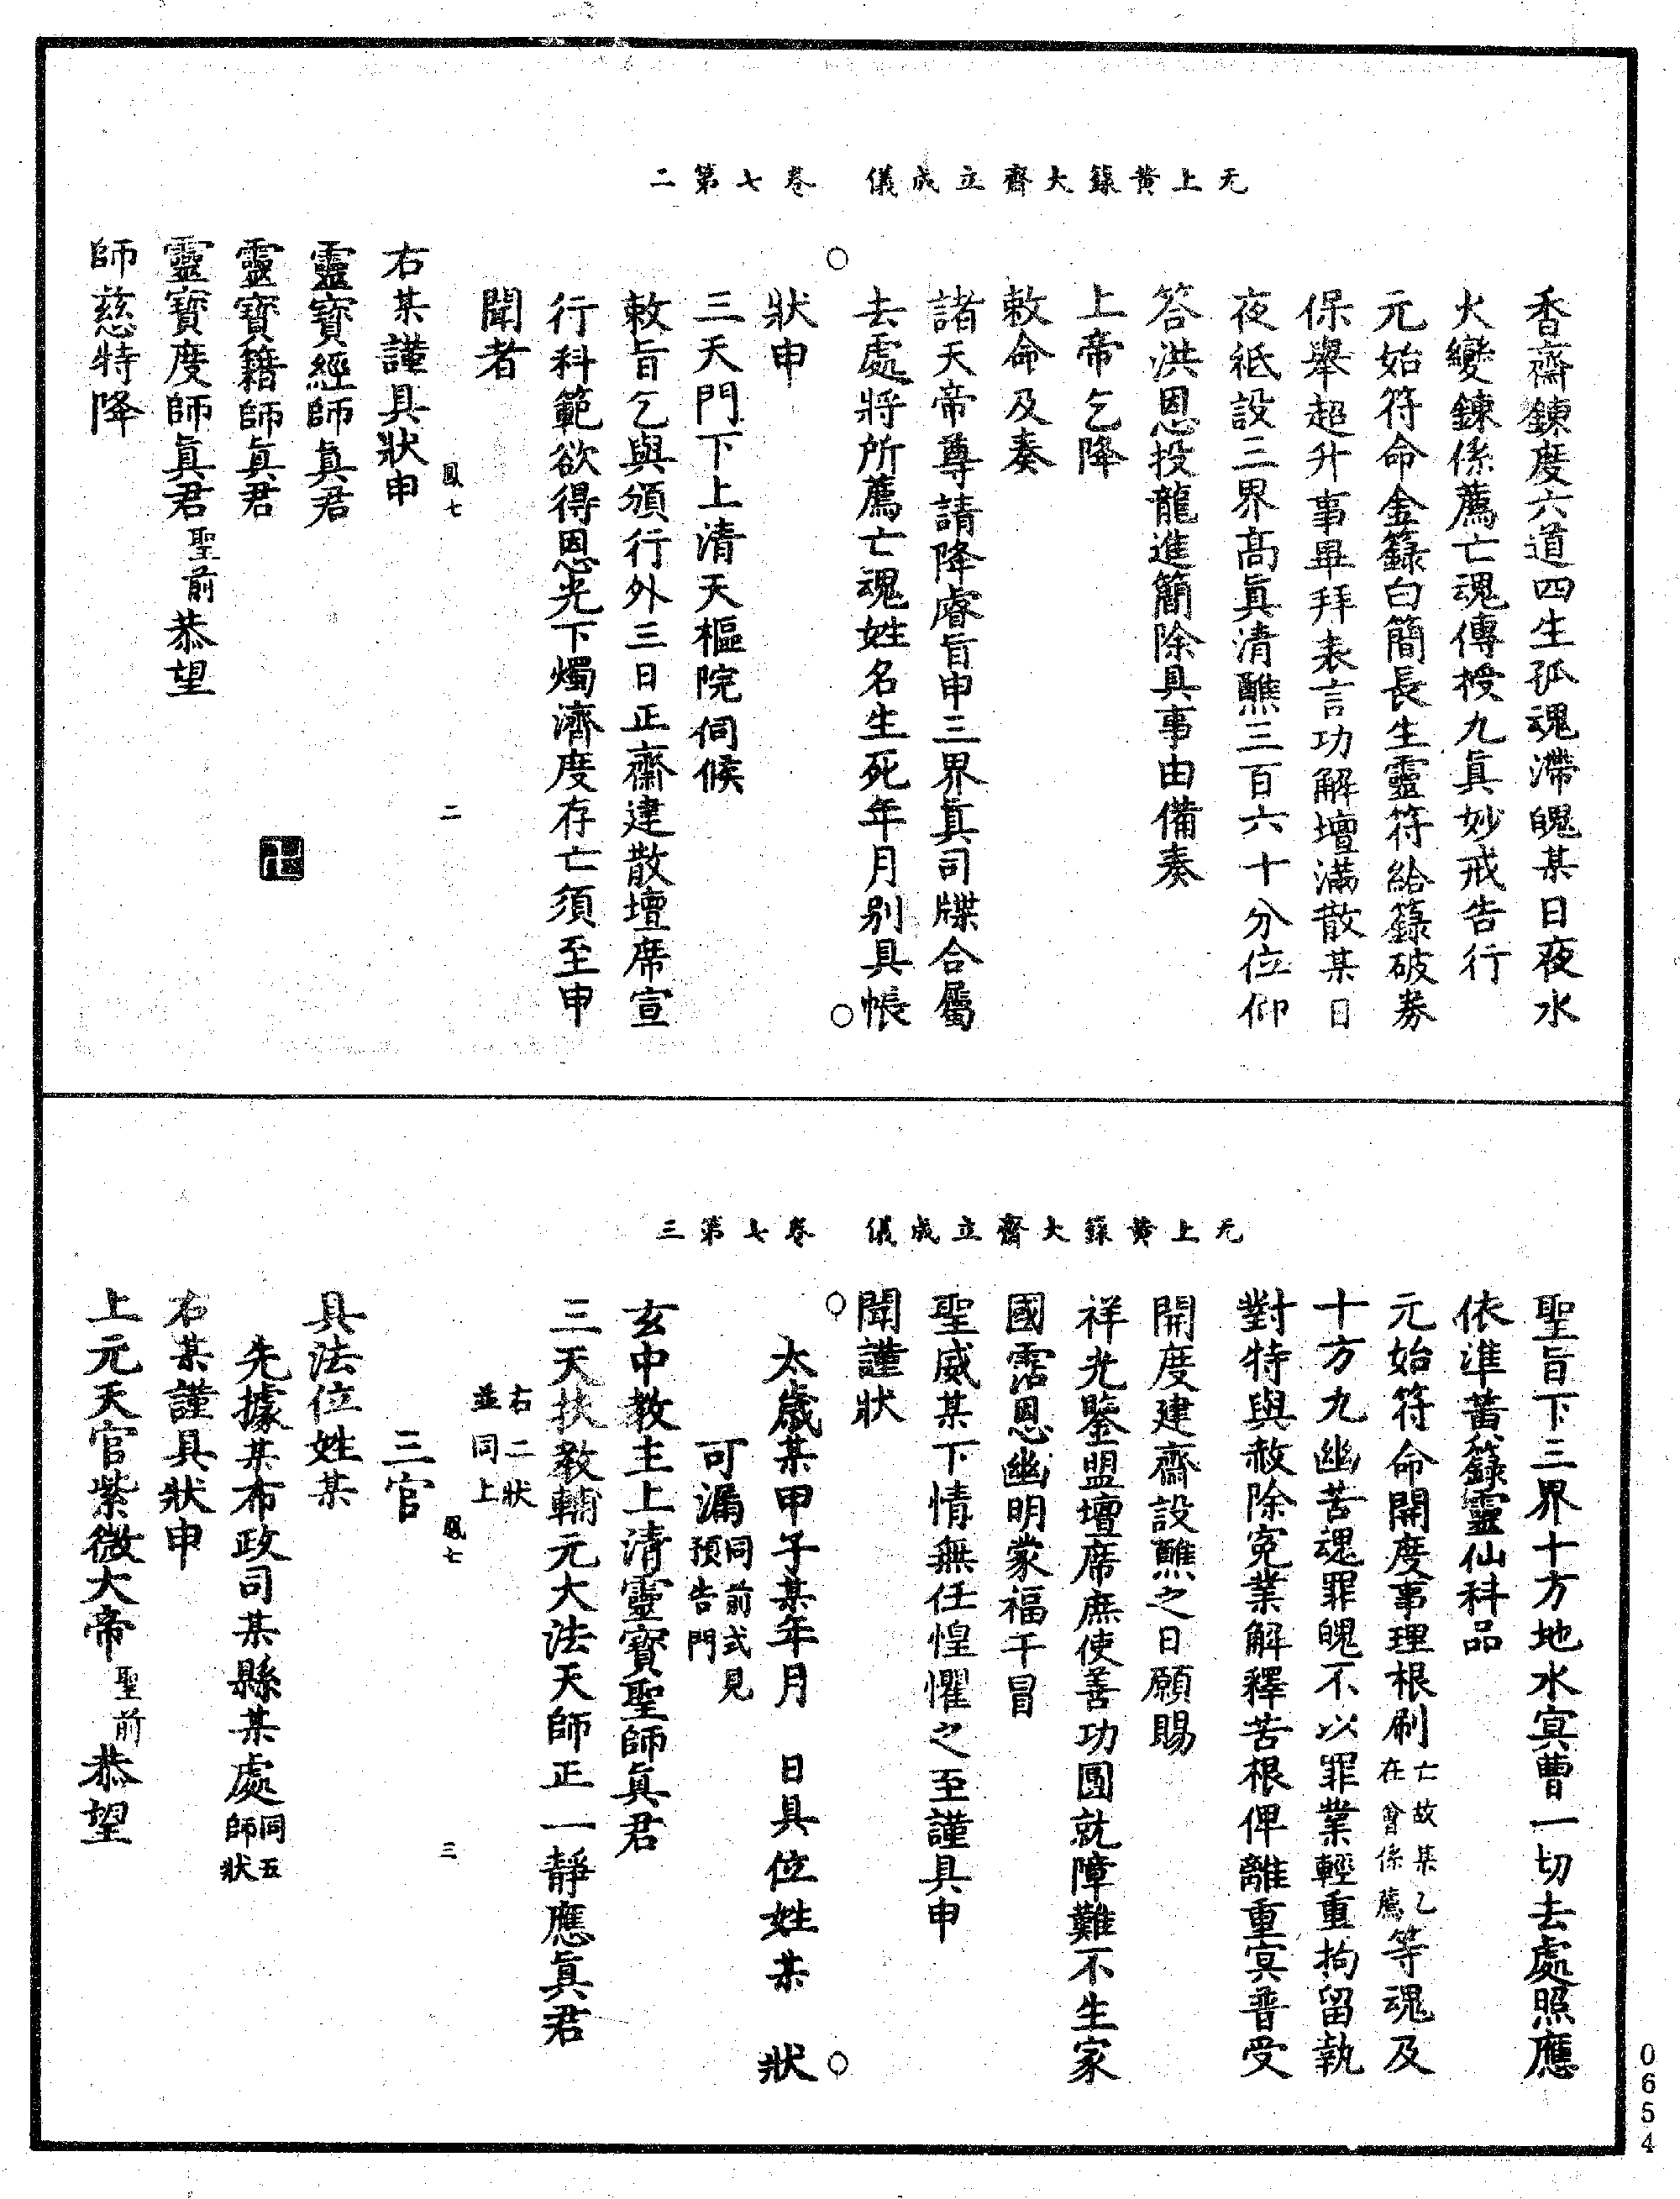 无上黃籙大齋立成儀　卷七第二
香齋鍊度六道四生孤魂滯魄某日夜水
火變鍊係薦亡魂傳授九眞妙戒告行
元始符命金籙白簡長生靈符給籙破券
保舉超升事畢拜表言功解壇滿散某日
夜祗設三界高眞清醮三百六十分位仰
答洪恩投龍進簡除具事由備奏
上帝乞降
敕命及奏
諸天帝尊請降睿旨申三界眞司牒合屬
去處將所薦亡魂姓名生死年月別具帳
狀申
三天門下上清天樞院伺候
敕旨乞與頒行外三日正齋建散壇席宣
行科範欲得恩光下燭濟度存亡須至申
聞者
鳳七　二
右某謹具狀申
靈寶經師眞君
靈寶籍師眞君
靈寶度師眞君聖前恭望
師慈特降
无上黃籙大齋立成儀　卷七第三
聖旨下三界十方地水冥曹一切去處照應
依準黃籙靈仙科品
元始符命開度事理根刷亡故某乙在會係薦等魂及
十方九幽苦魂罪魄不以罪業輕重拘留執
對特與赦除冤業解釋苦根俾離重冥普受
開度建齋設醮之日願賜
祥光鑒盟壇席庶使善功圓就障難不生家
國霑恩幽明蒙福干冒
聖威某下情無任惶懼之至謹具申
聞謹狀
太歲某甲子某年月　日具位姓某　狀
可漏同前式見預告門
玄中教主上清靈寶聖師眞君
三天扶教輔元大法天師正一靜應眞君
右二狀並同上
鳳七　三
三官
具法位姓某
先據某布政司某縣某處同五師狀
右某謹具狀申
上元天官紫微大帝聖前恭望
0654